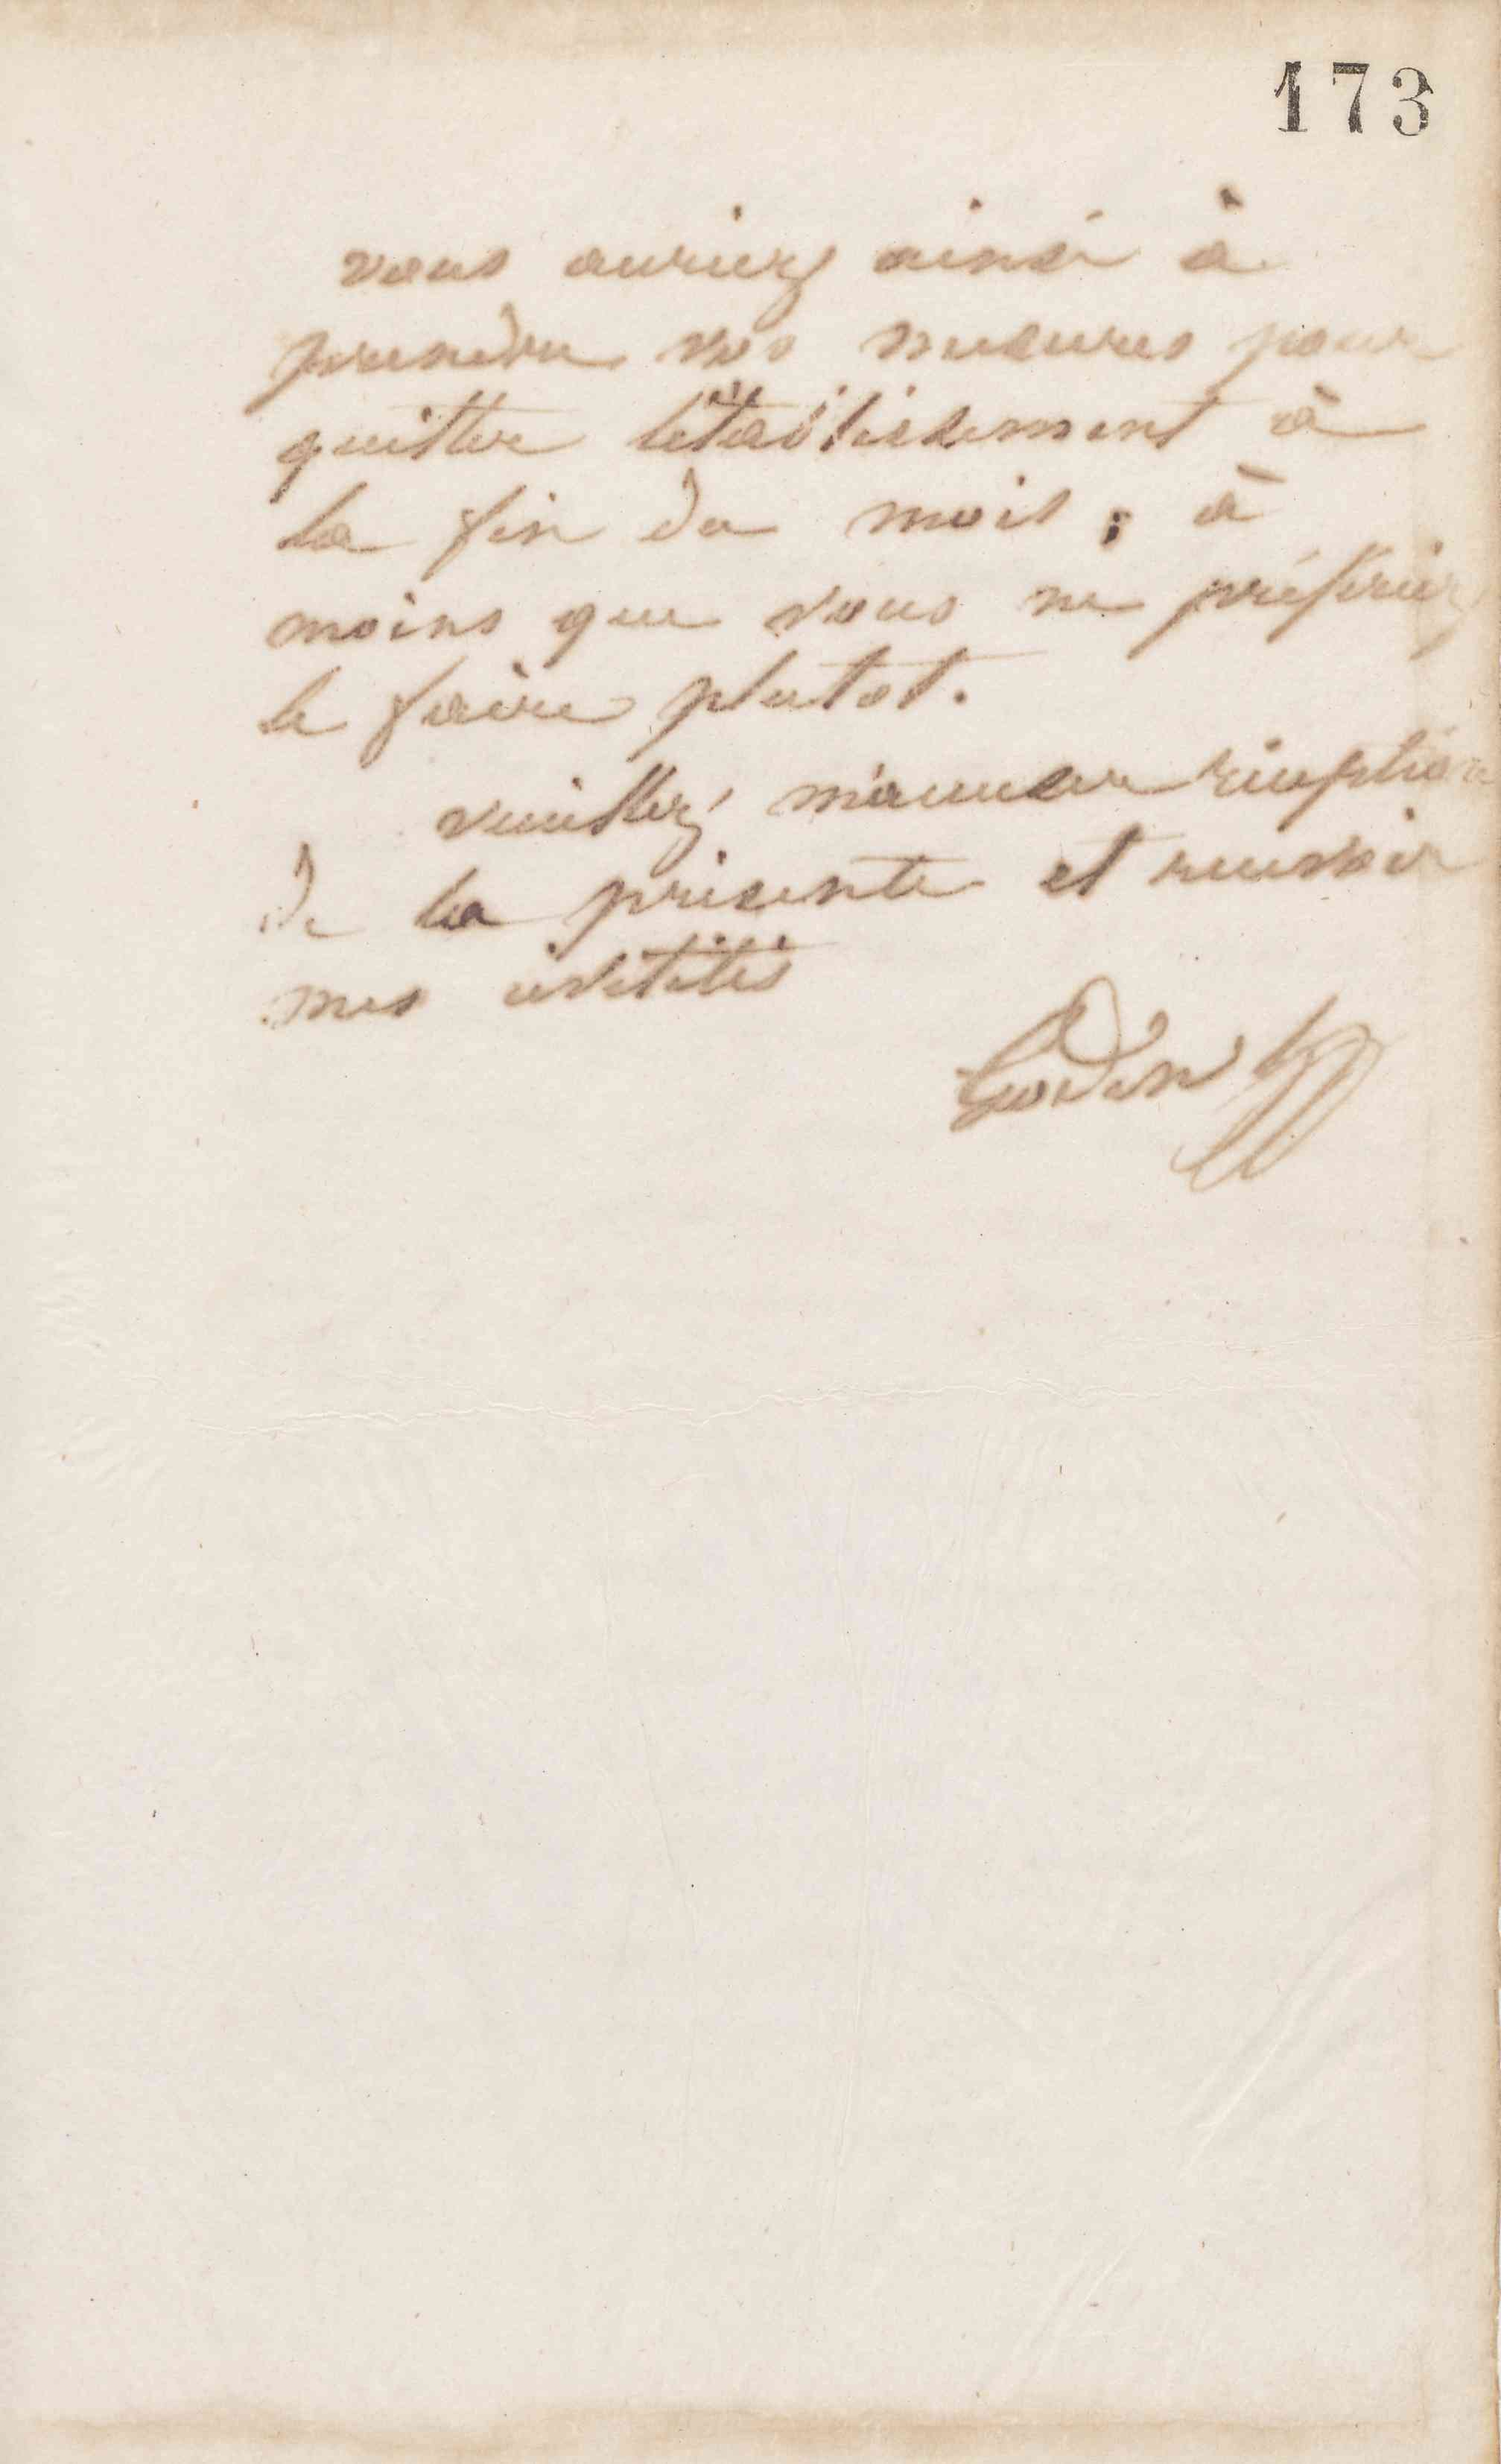 173
vous auriez ainsi à
prendre vos mesures pour
quitter l'établissement à
la fin du mois ; à
moins que vous ne préfériez
le faire plutot.
veuillez m'accuser réception
de la présente et recevoir
mes civilités
Godin